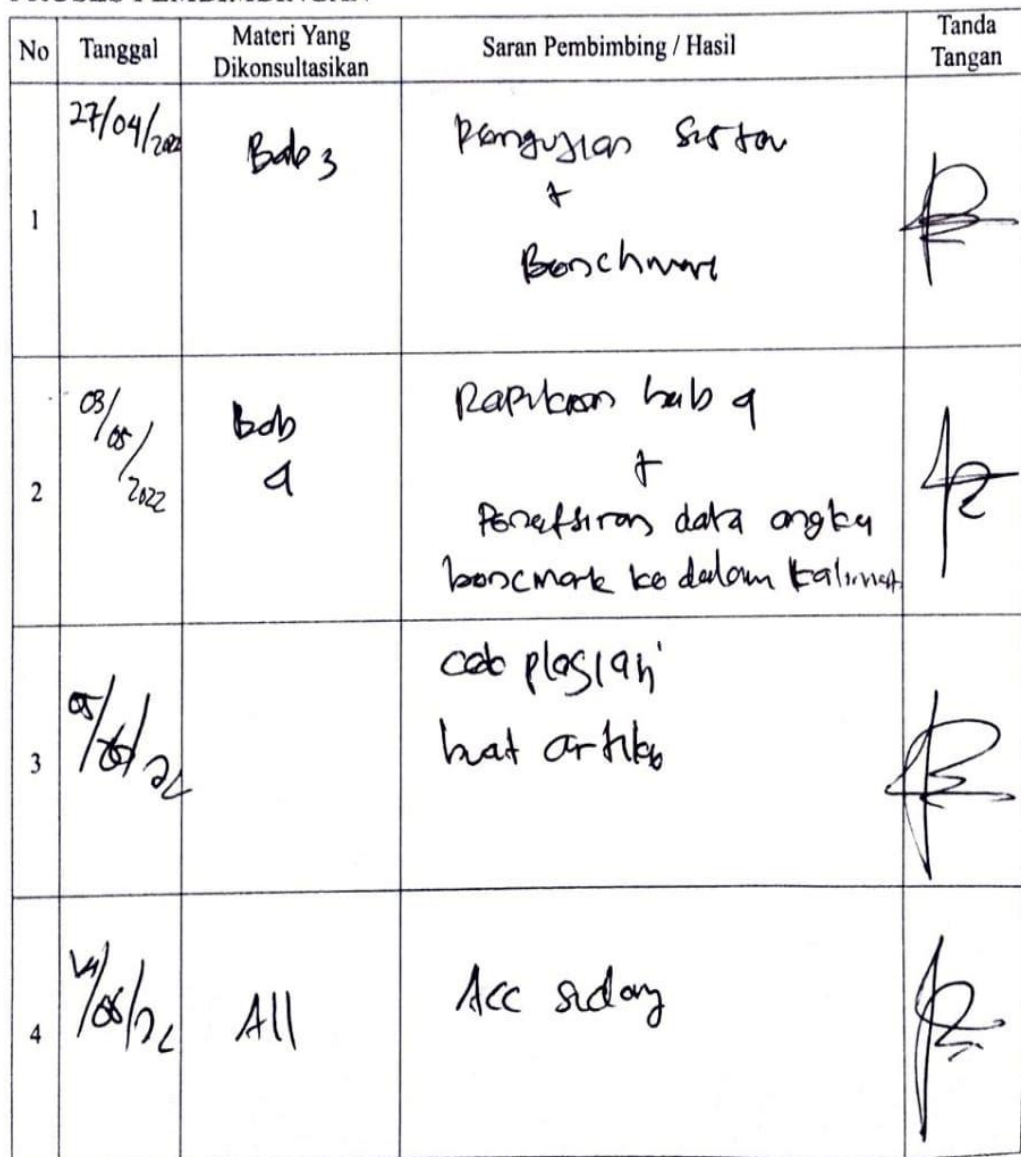 No Tanggal Materi Yang Dikonsultasikan Saran Pembimbing / Hasil Tanda Tangan
1 27/04/2022 Bab 3 Pengujian Sistem
+
Benchmark
2 03/05/2022 Bab 4 Rapikan bab 4
+
Penafsiran data angka
bencmark ke dalam kalimat
3 cek plagiasi
buat artikel
4 All Acc sidang